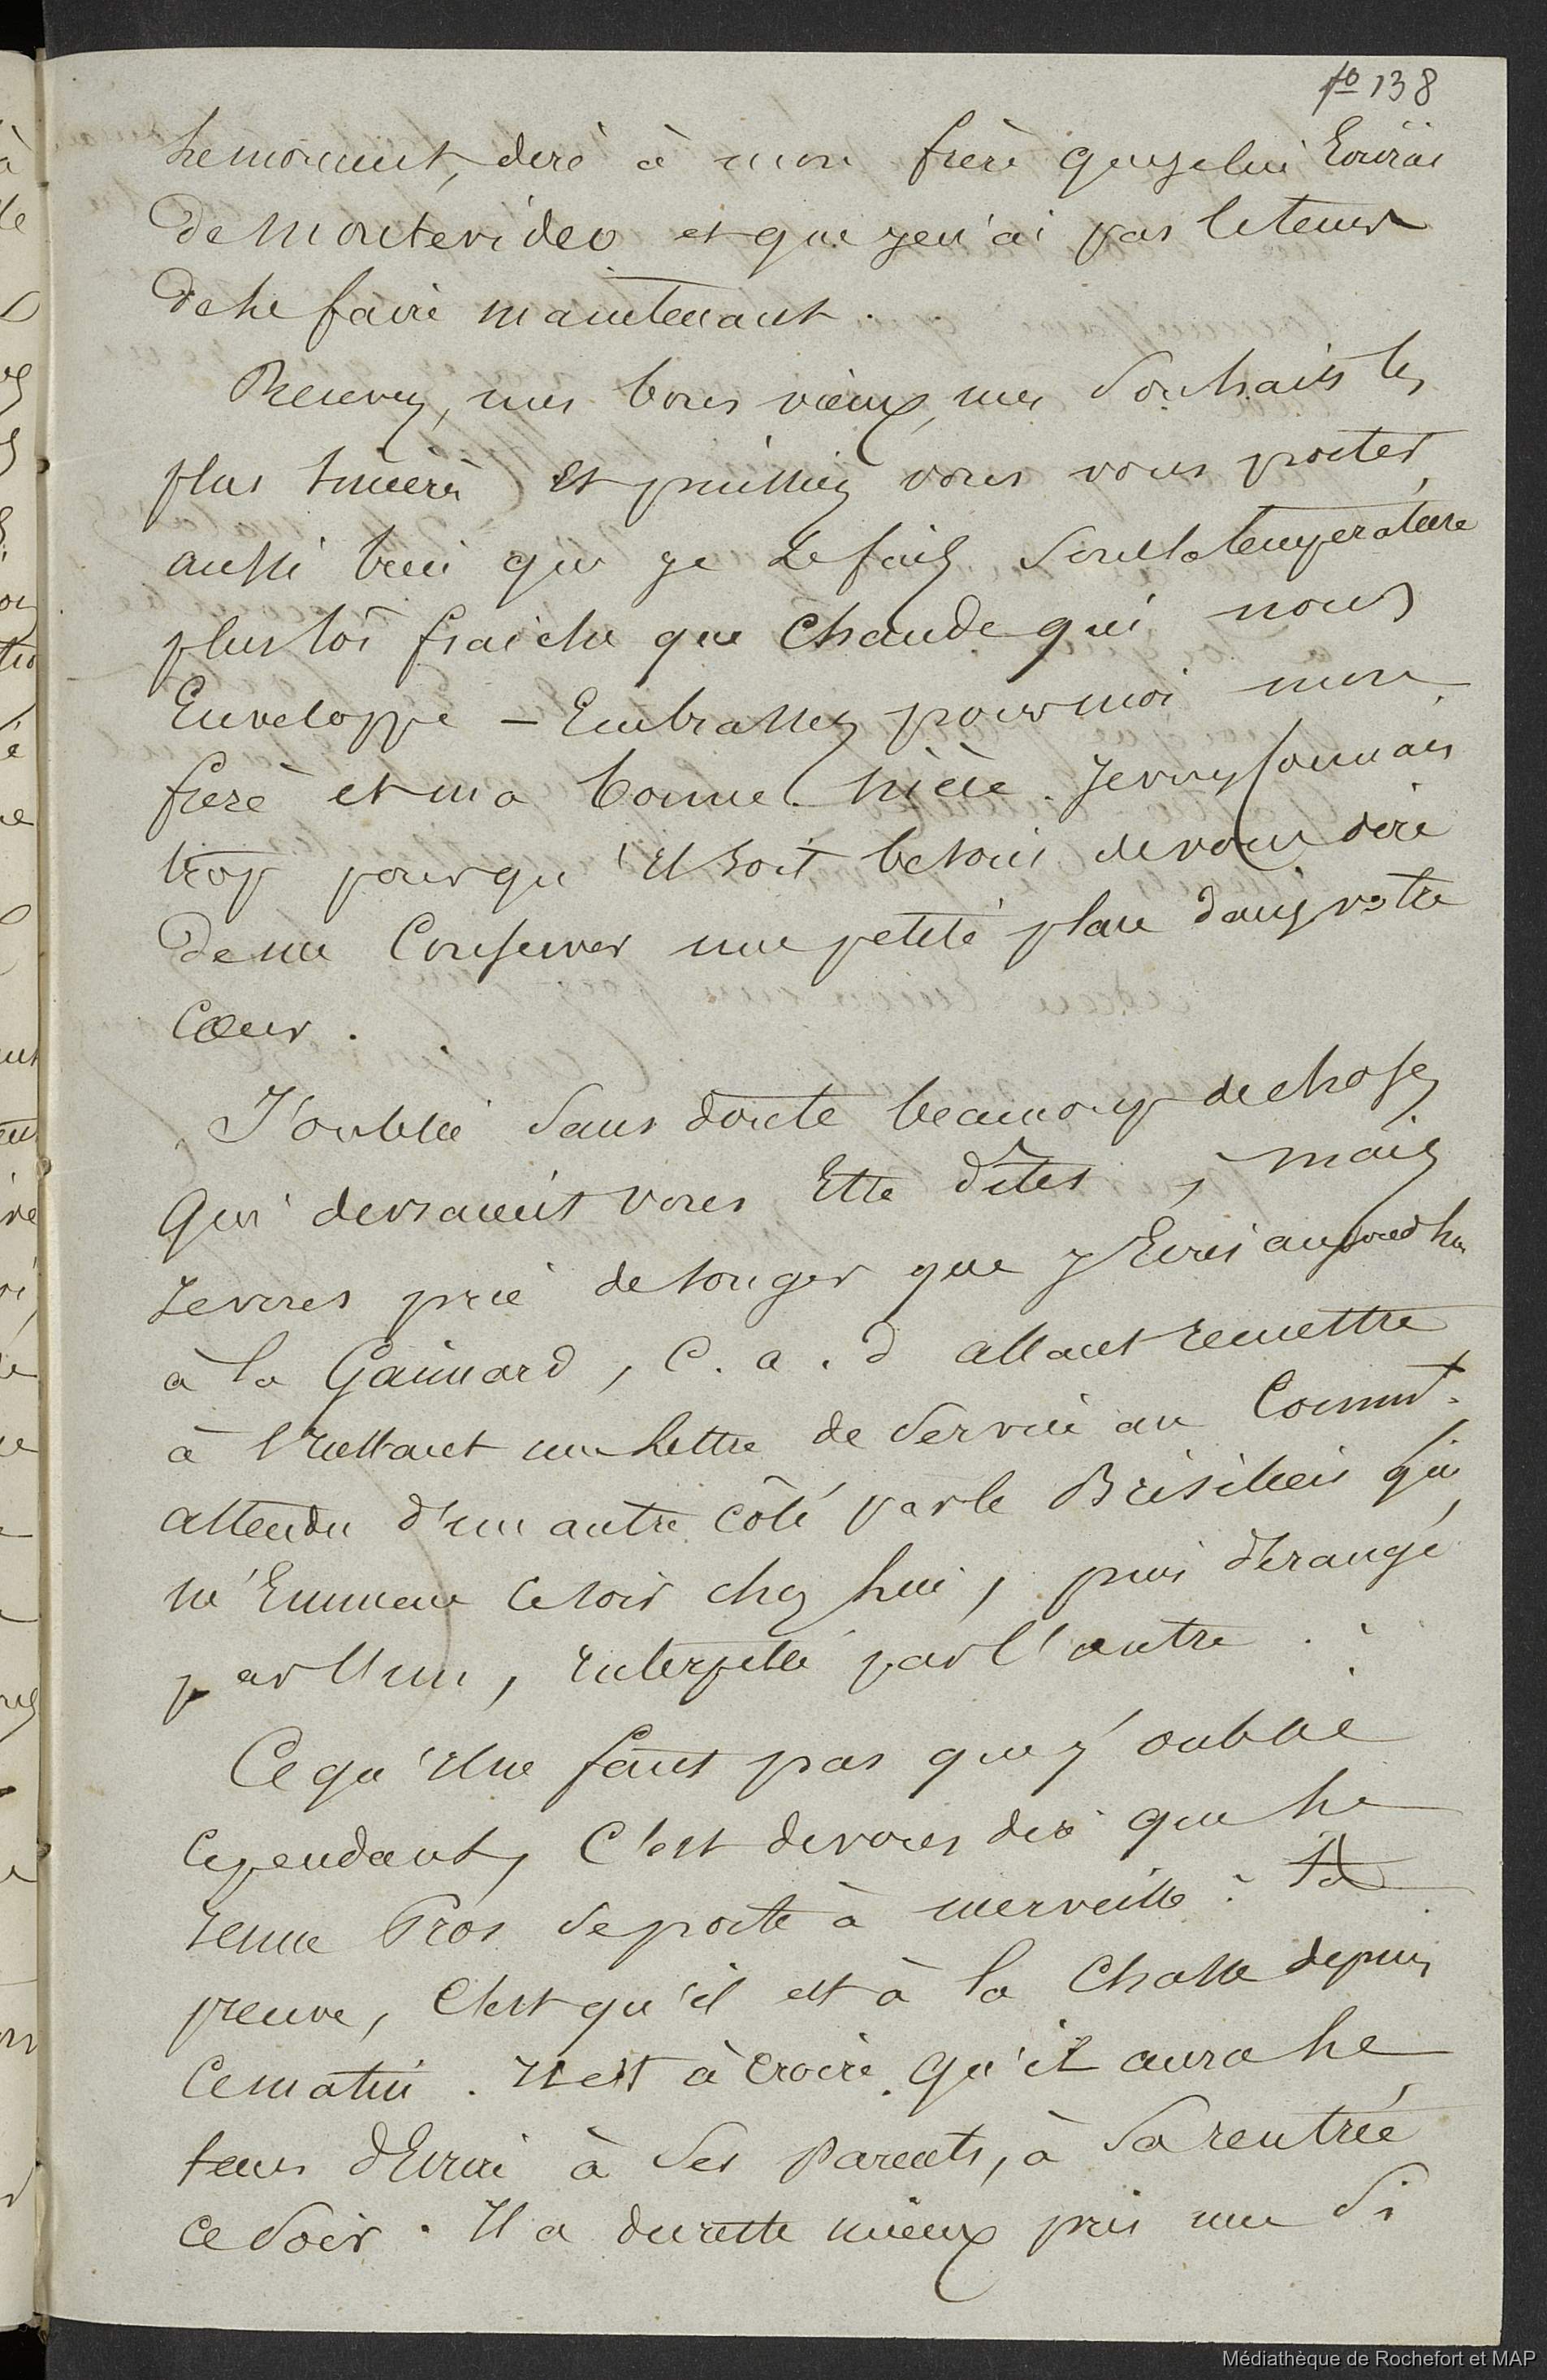 fo 138
le moment, dire à mon frère que je lui Ecrirai
de Montevideo et que je n'ai pas le tems
de le faire maintenant.
Recevez, mes bons vieux, mes Souhaits les
plus sincères et puissiez vous vous porter
aussi bien que je le fais, Sous la température
plus tôt fraiche que Chaude qui nous
Enveloppe – Embrassez pour moi mon
frère et ma bonne nièce. Je vous connais
trop pour qu'il soit besoin de vous dire
de me Conserver une petite place dans votre
Cœur.
J'oublie Sans doute beaucoup de choses
qui devraient vous Etre dites, mais
Je vous prie de songer que j'Ecris aujourd'hui
à la Gaimard, C. a. d allant remettre
à l'instant une lettre de Service au Commdt.
attendu d'un autre côté par le Brésilien qui
m'Emmene ce soir chez lui, puis dérangé
par l'un, interpellé par l'autre.
Ce qu'il ne faut pas que j'oublie
Cependant, C'est de vous dire que le
Jeune Pros se porte à merveille : La
preuve, C'est qu'il est à la Chasse depuis
Ce matin. Il est à croire qu'il aura le
tems d'Ecrire à Ses Parents, à Sa rentrée
ce Soir. Il a du reste mieux pris une Si
Médiathèque de Rochefort et MAP